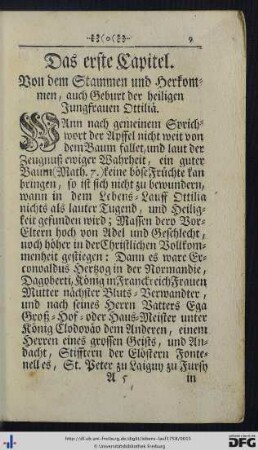 9
Das erste Capitel.
Von dem Stammen und Herkom-
men, auch Geburt der heiligen
Jungfrauen Ottiliä.
WAnn nach gemeinem Sprich-
wort der Apffel nicht weit von
dem Baum fallet, und laut der
Zeugnuß ewiger Wahrheit, ein guter
Baum (Math. 7.) keine böse Früchte kan
bringen, so ist sich nicht zu bewundern,
wann in dem Lebens-Lauff Ottiliä
nichts als lauter Tugend, und Heilig-
keit gefunden wird; Massen dero Vor-
Eltern hoch von Adel und Geschlecht,
noch höher in der Christlichen Vollkom-
menheit gestiegen: Dann es ware Er-
conwaldus Hertzog in der Normandie,
Dagoberti, König in Franckreich Frauen
Mutter nächster Bluts-Verwandter,
und nach seines Herrn Vatters Ega
Groß-Hof- oder Haus-Meister unter
König Clodoväo dem Anderen, einem
Herren eines grossen Geists, und An-
dacht, Stifftern der Clöstern Fonte-
nelles, St. Peter zu Laigny zu Fursy
A 5 in
http://dl.ub.uni-freiburg.de/diglit/
© Universitätsbibliothek Freiburg
gefördert durch die
DFG